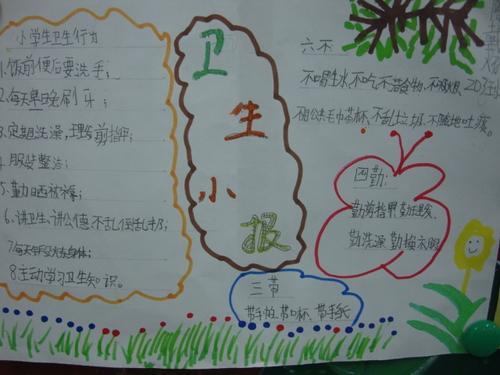 小学生卫生行为
1.饭前便后要洗手；
2.每天早晚刷牙；
3.定期洗澡，理发剪指甲；
4.服装整洁；
5.勤晒被褥；
6.讲卫生讲公德不乱扔乱
身体；
8.主动学习卫生知识。
卫生小报
六不
不喝生水，不吃不洁食物，不吸烟
不用公共毛巾茶杯，不乱扔垃圾，不随地吐痰。
四勤：
勤剪指甲勤理发
勤洗澡 勤换衣服
三带
带手帕、带口杯、带手纸